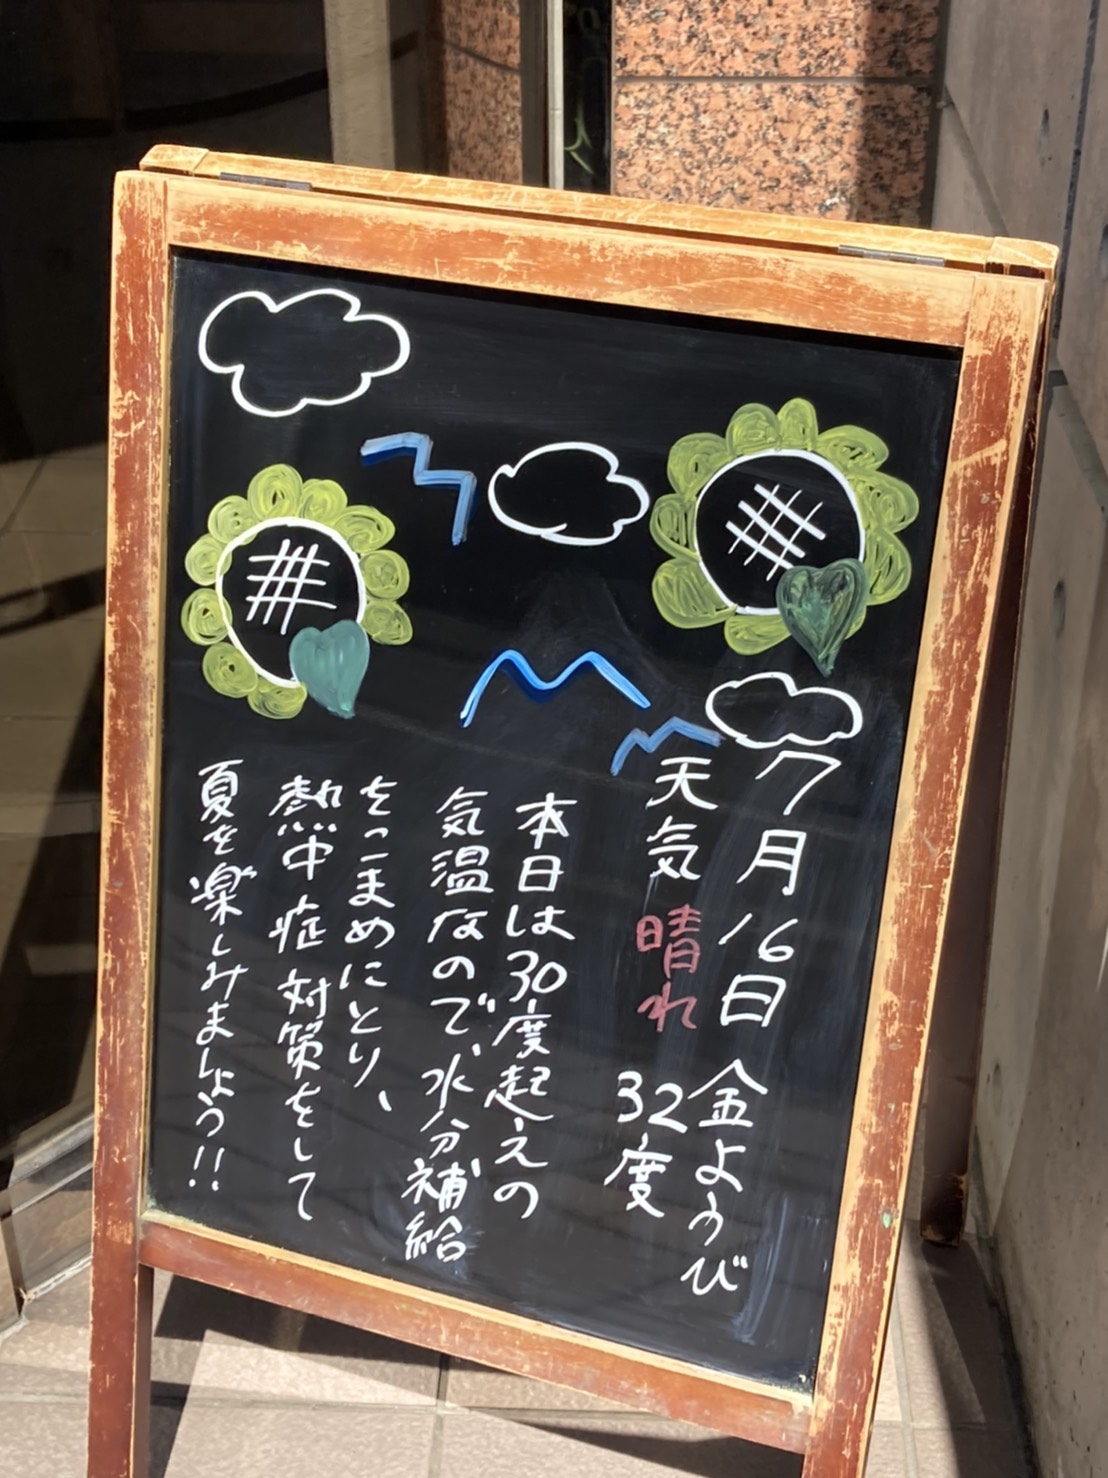 7月16日 金ようび
天気 晴れ 32度
本日は30度起えの
気温なので、水分補給
をこまめにとり、
熱中症対策をして
夏を楽しみましょう!!